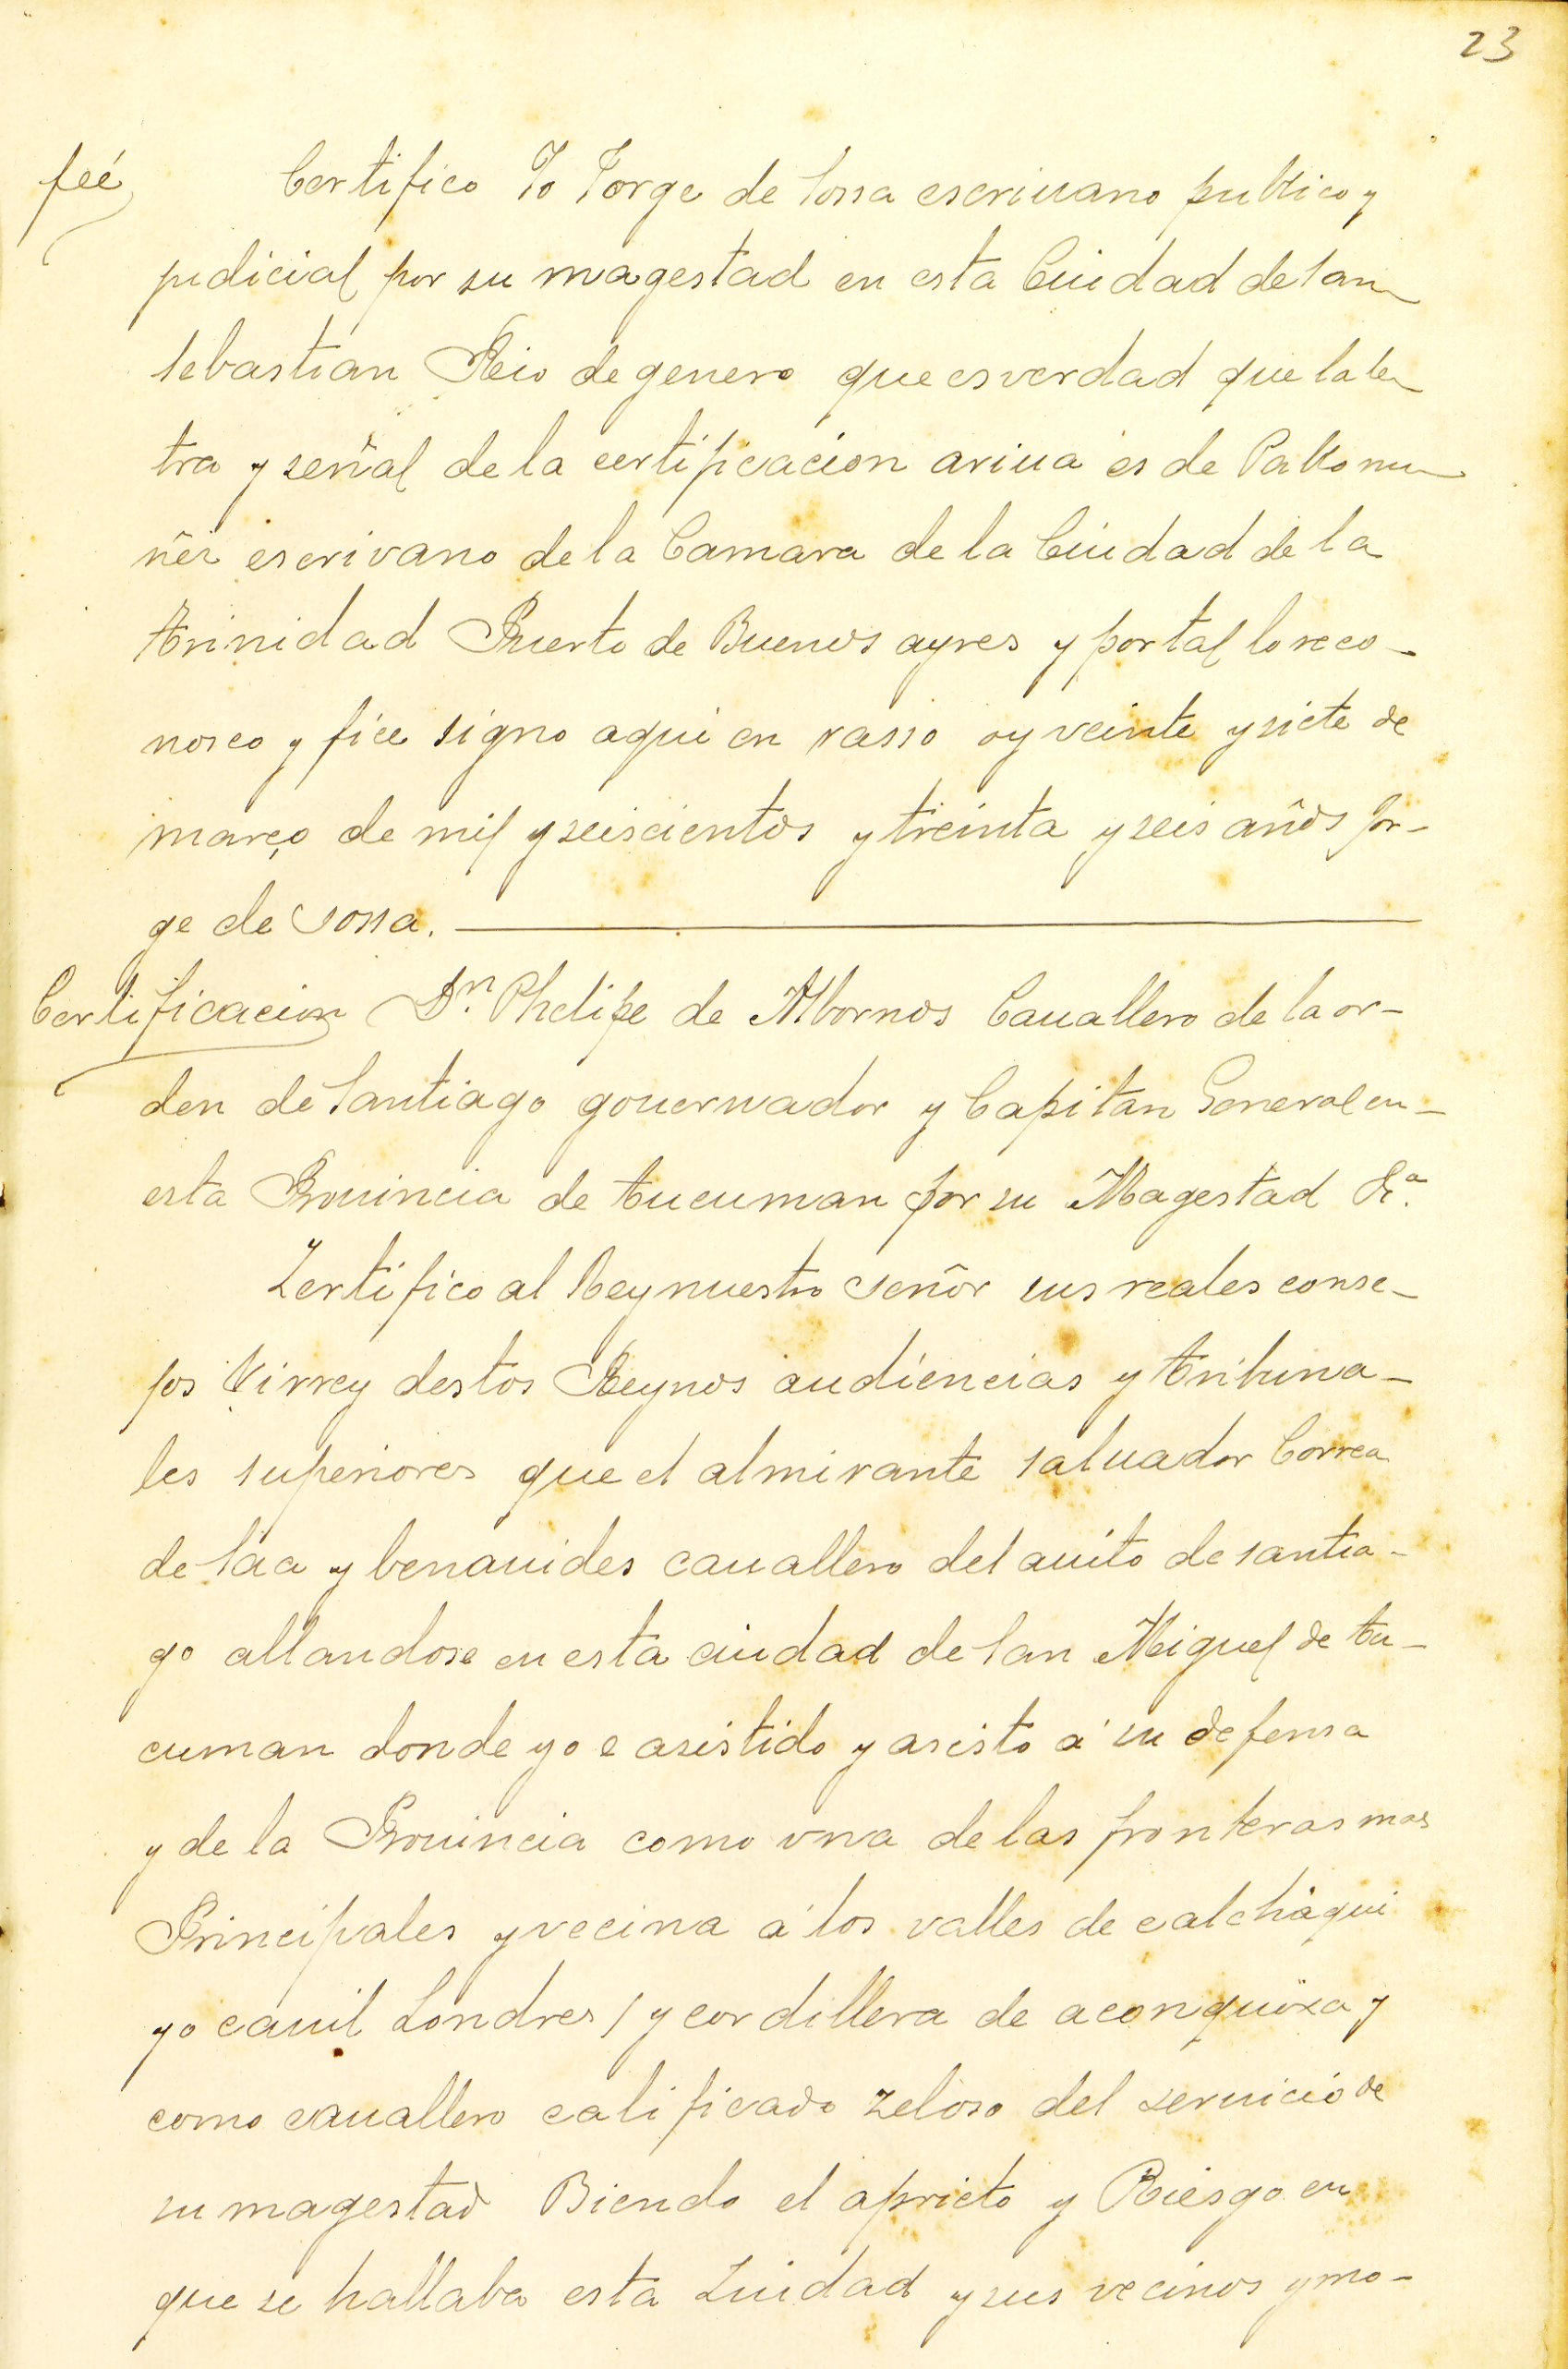 23
feé Certifico Yo Jorge de Sossa escriuano publico y
judicial por su magestad en esta Ciudad de San
Sebastian Reio de genero que es verdad que la le
tra y señal de la certificacion ariua es de Pablo nu
ñez escrivano de la Camara de la Ciudad de la
trinidad Puerto de Buenos ayres y por tal lo reco-
nosco y fice signo aqui en rasso oy veinte y siete de
março de mil y seiscientos y treinta y seis años Jor-
ge de Sossa.
Certificacion Dn. Phelipe de Albornos Cauallero de la or-
den de Santiago gouernador y Capitan General en-
esta Prouincia de tucuman por su Magestad &a.
Zertifico al Rey nuestro Señor sus reales conse-
jos Virrey destos Reynos audiencias y tribuna-
les superiores que el almirante saluador Correa
de Saa y benauides cauallero del auito de santia-
go allandose en esta ciudad de San Miguel de tu-
cuman donde yo e asistido y asisto á su defensa
y de la Prouincia como vna de las fronteras mas
Principales y vecina á los valles de calchaqui
yocauil Londres / y cordillera de aconquixa y
como cauallero calificado zeloso del seruicio de
su magestad Biendo el aprieto y Riesgo en
que se hallaba esta Ziudad y sus vecinos y mo-